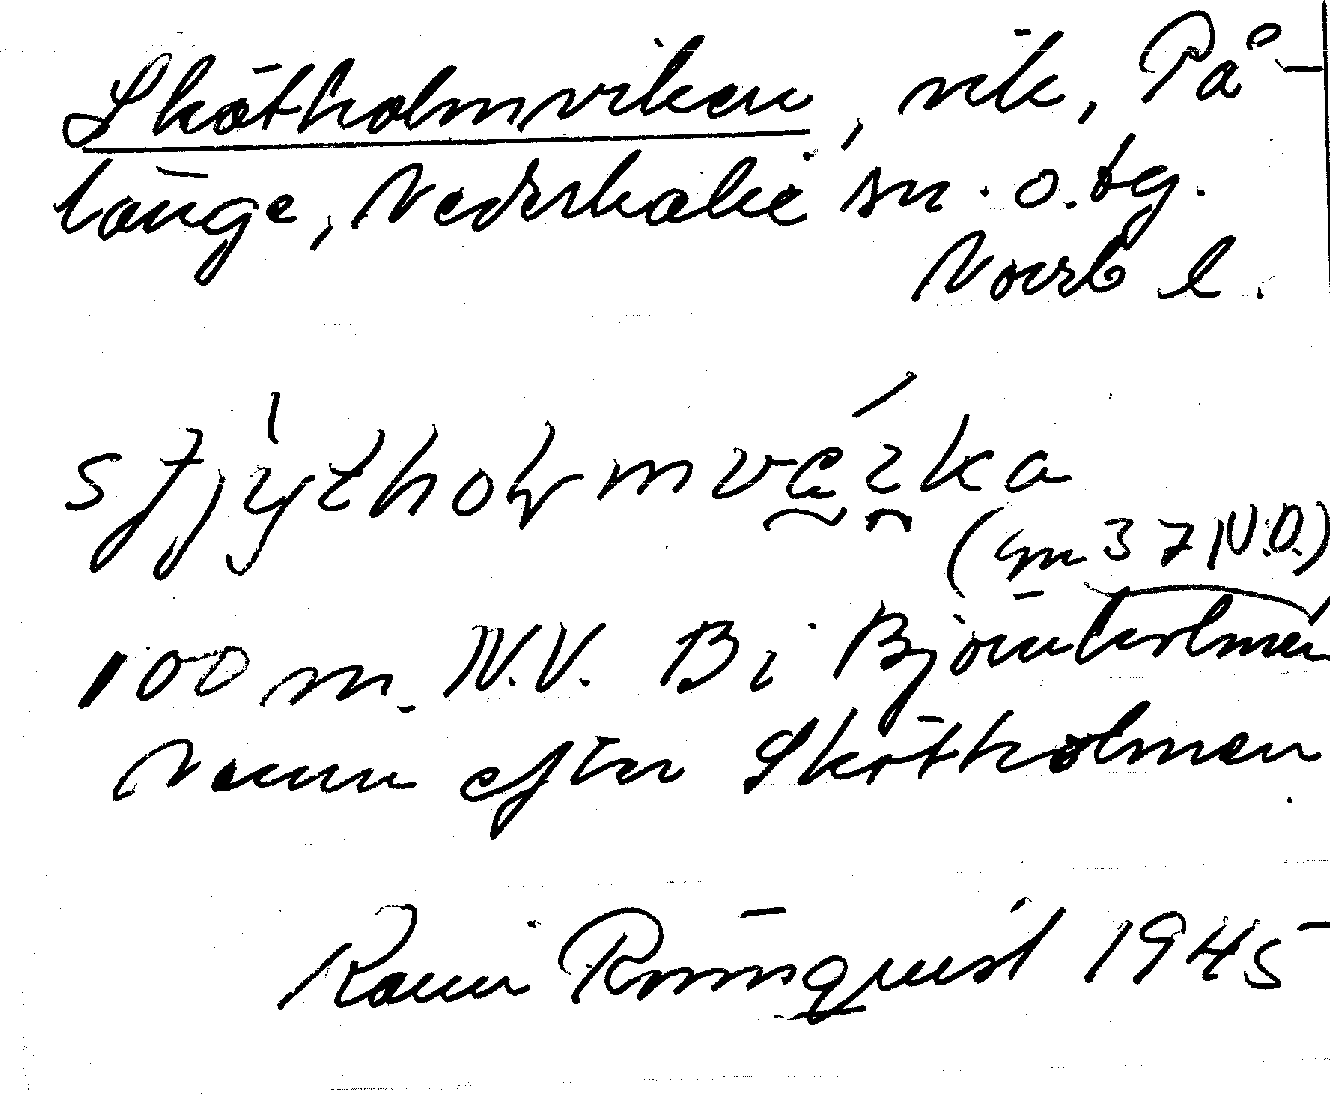 Skötholmviken, vik, På-
länge, Nederkalix sn. o. tg.
Norrb l.
(gm 37 N.O.)
100 m. N.V. Bi Björnholmen
Namn efter Skötholmen
Rönnquist 1945